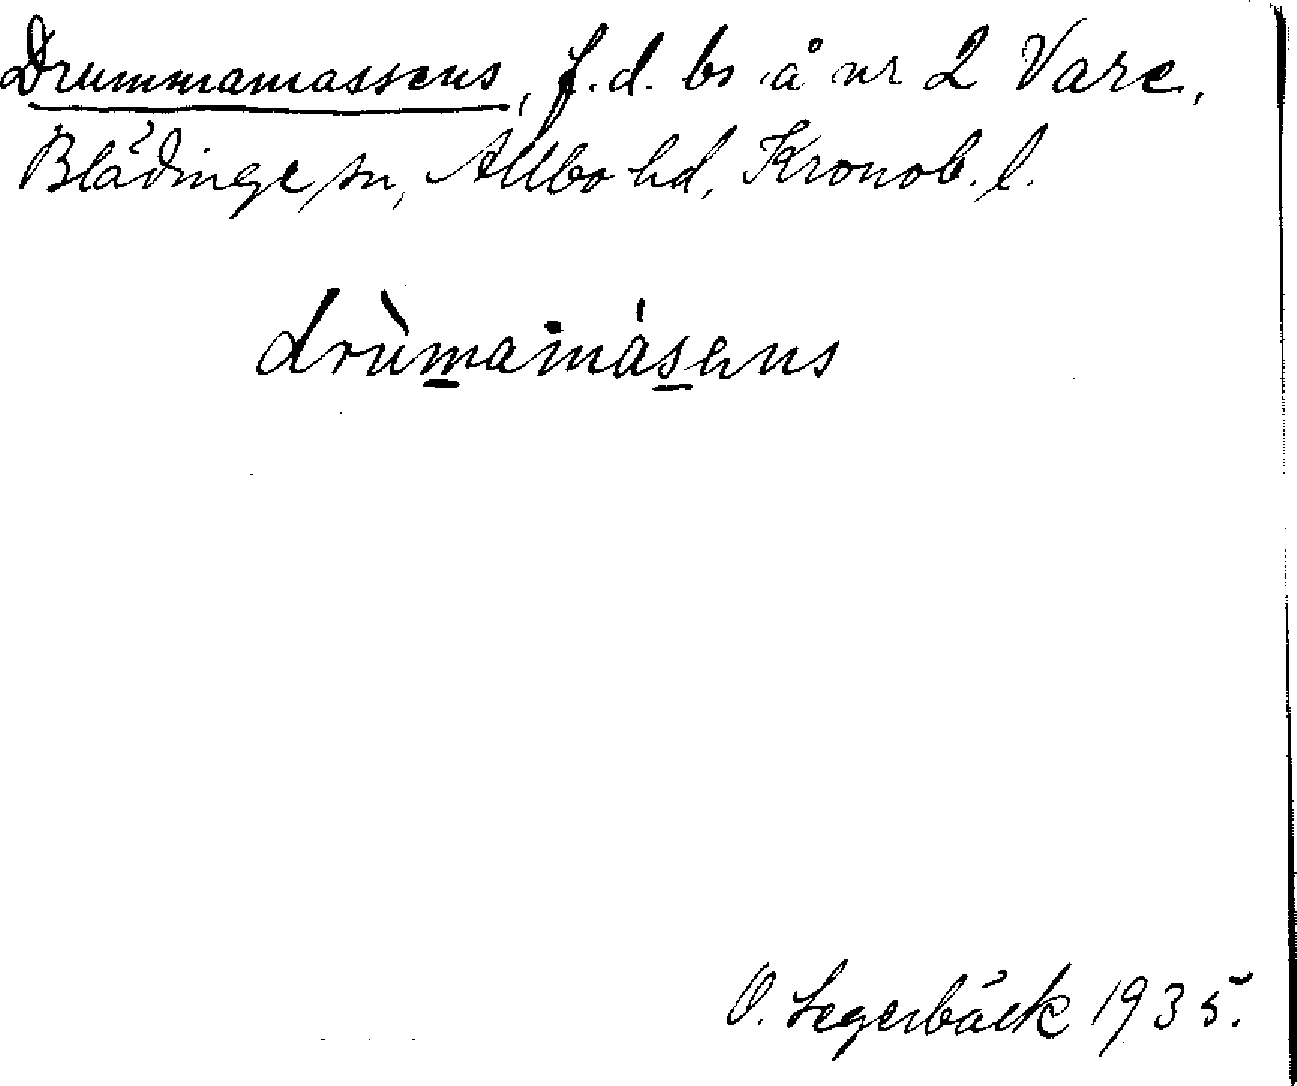 Drummamassens, f.d. bs å nr 2 Vare,
Blädinge sn, Allbo hd, Kronob. l.
drùmamásens
O. Segerbäck 1935.